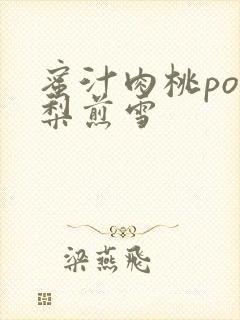 蜜汁肉桃po
梨煎雪
梁燕飛